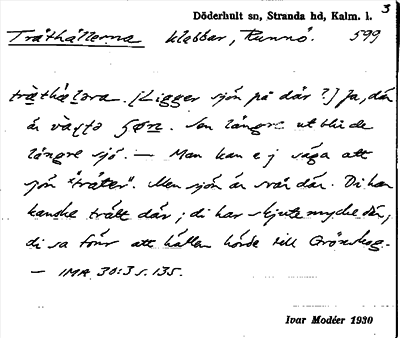 3
Döderhult sn, Stranda hd, Kalm. l.
Tråthällerna klabbar, Runnö. 599
tràthä̀lara. [Ligger sjön på där?] Ja, där
är värsta sjön. Sen längre ut bli de
längre sjö. — Man kan ej säga att
sjön "tråter". Men sjön är svår där. Di ha
kanske trått där; di har skjute mycke där,
di sa förr att hällen hörde till Grönskog.
— IMR 30:3 s. 135.
Ivar Modéer 1930